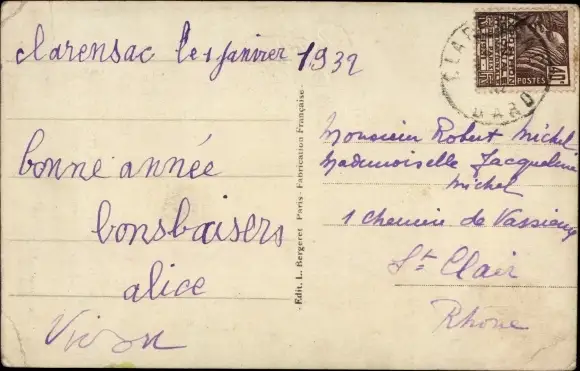 clarensac le 1 janvier 1932
bonne année
bonsbaisers
alice
Edit. L. Bergeret Paris - Fabrication Française
CLAR
GARD
POSTES
Monsieur Robert Michel
Mademoiselle Jacqueline
Michel
1 chemin de Vassieux
St Clair
Rhône